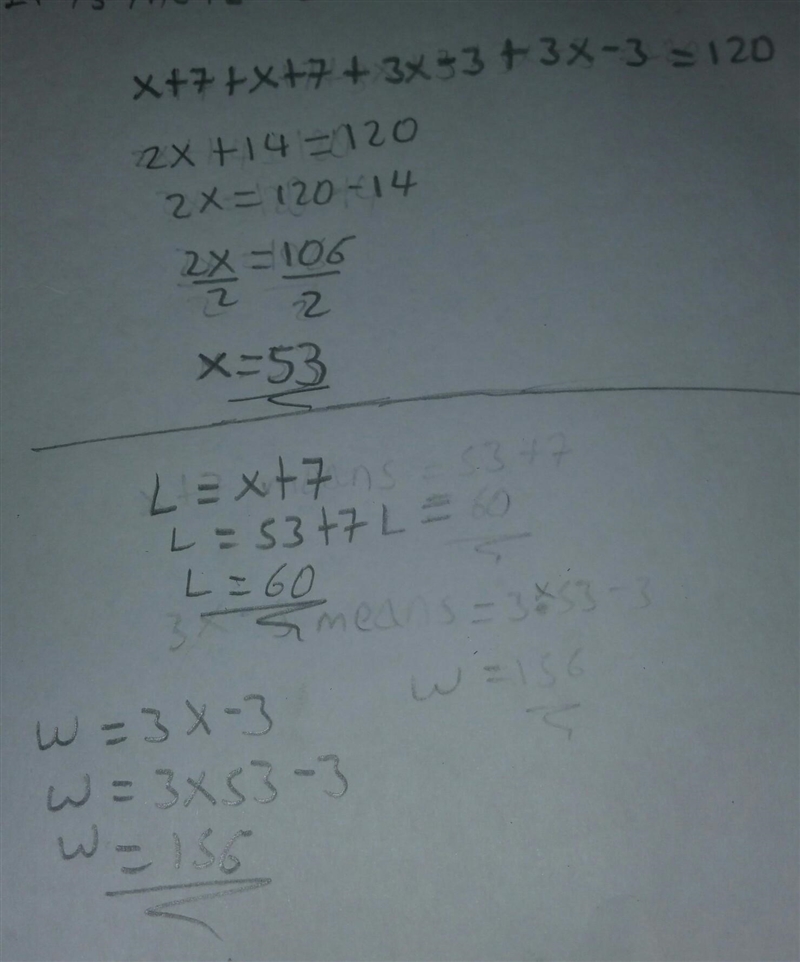 x+7+x+7+3x-3+3x-3=120
2x+14=120
2x=120-14
2x/2=106/2
x=53
L=x+7
means = 53+7
L=53+7 L = 60
L=60
3x means = 3x53-3
w=156
w=3x-3
w=3x53-3
w=156